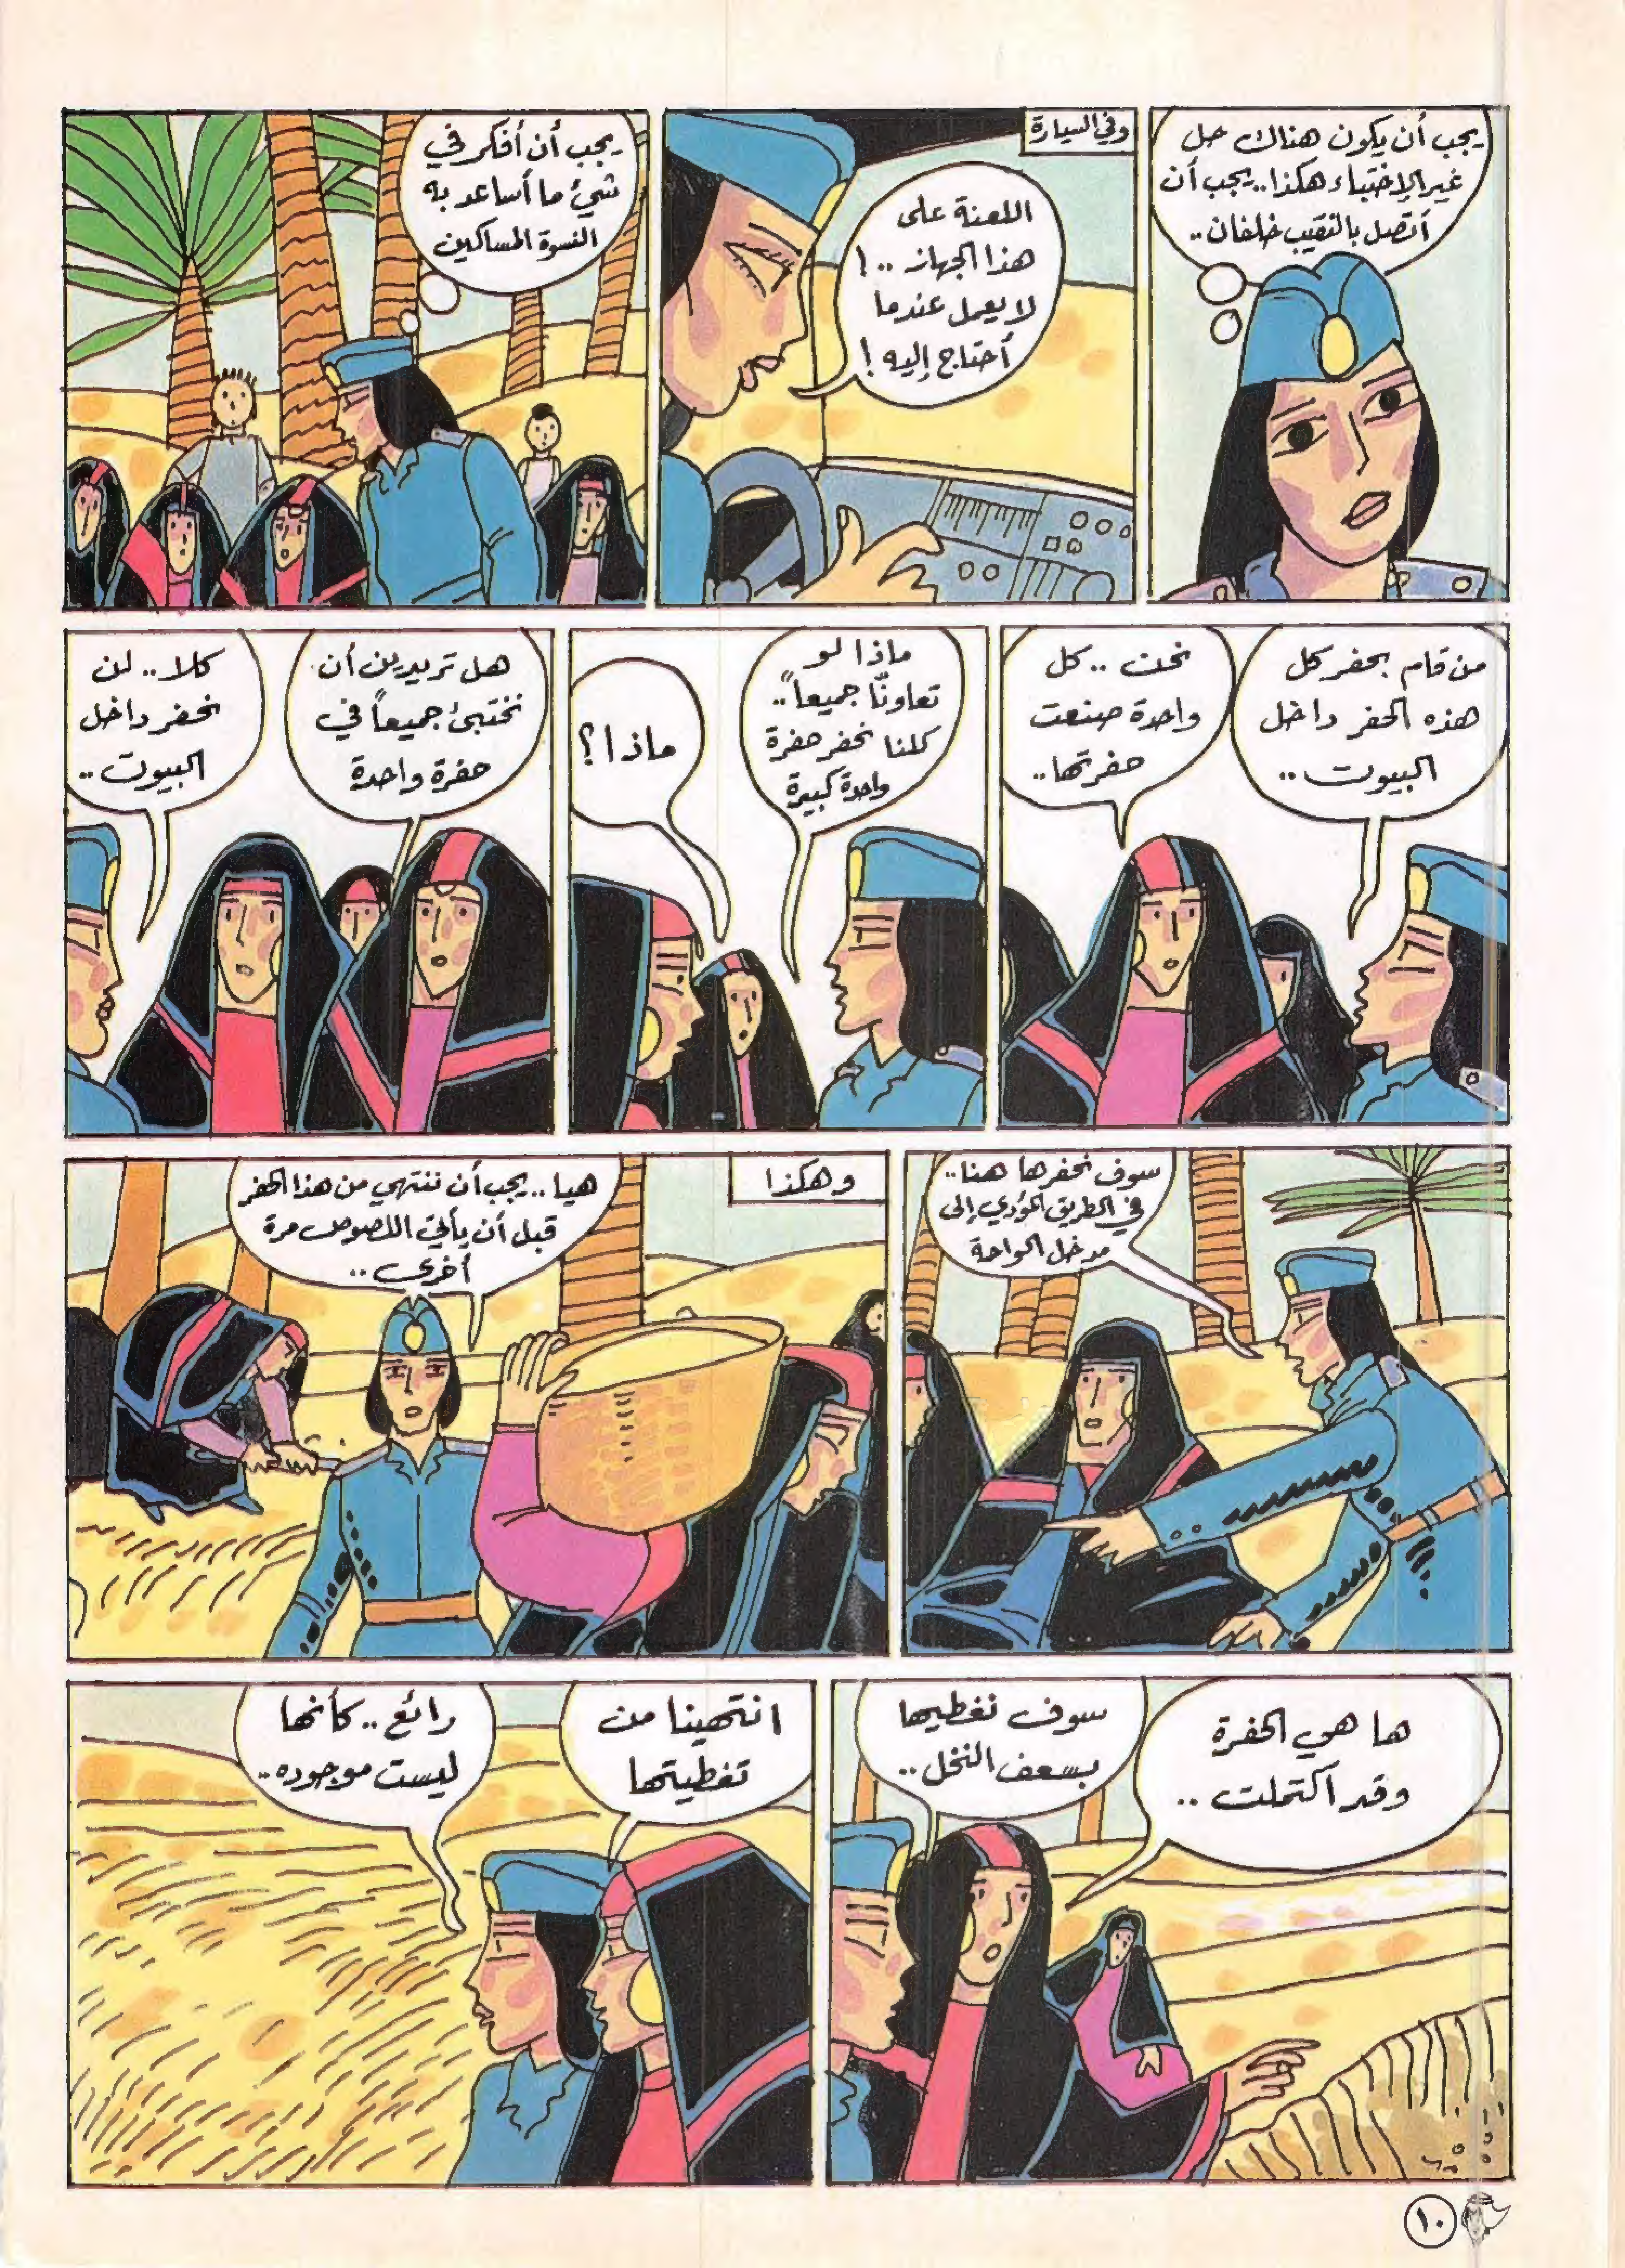 يجب أن يكون هناك حل
غير الإختباء هكذا.. يجب أن
أتصل بالنقيب خلفان..
وفي السيارة
اللعنة على
هذا الجهاز ..!
لا يعمل عندما
أحتاج إليه !
يجب أن أفكر في
شيئ ما أساعد به
النسوة المساكين
من قام بحفر كل
هذه الحفر داخل
البيوت ..
نحن .. كل
واحدة صنعت
حفرتها..
ماذا لو
تعاونّا جميعاً..
كلنا نحفر حفرة
واحدة كبيرة
ماذا؟
هل تريدين أن
نختبئ جميعاً في
حفرة واحدة
كلا .. لن
نحفر داخل
البيوت ..
سوف نحفرها هنا..
في الطريق المؤدي إلى
مدخل الواحة
وهكذا
هيا .. يجب أن ننتهي من هذا الحفر
قبل أن يأتي اللصوص مرة
أخرى ..
ها هي الحفرة
وقد اكتملت ..
سوف نغطيها
بسعف النخل ..
انتهينا من
تغطيتها
رائع .. كأنها
ليست موجوده..
١٠